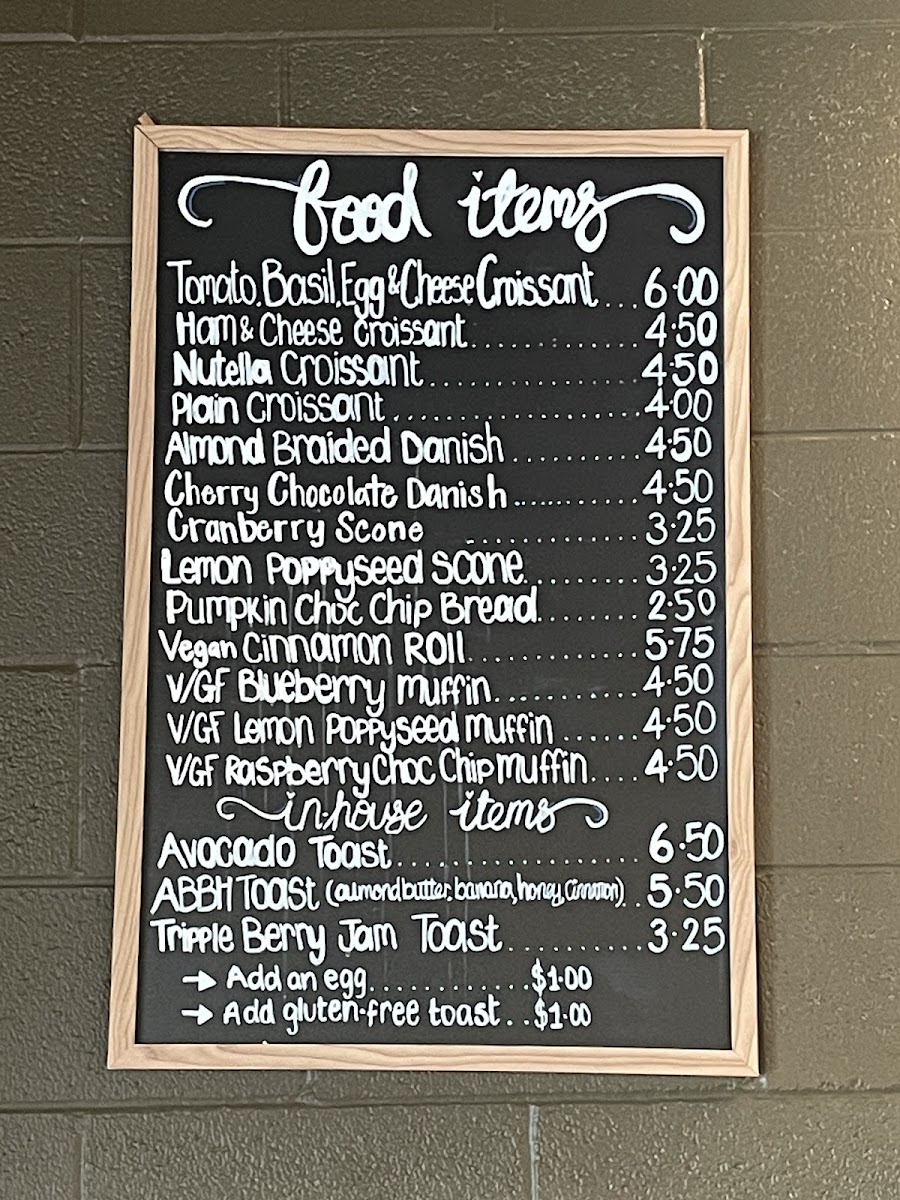 food items
Tomato, Basil, Egg & Cheese Croissant...6.00
Ham & Cheese Croissant............4.50
Nutella Croissant.................4.50
Plain Croissant...................4.00
Almond Braided Danish..........4.50
Cherry Chocolate Danish...........4.50
Cranberry Scone .............3.25
Lemon Poppyseed Scone.........3.25
Pumpkin Choc Chip Bread........2.50
Vegan Cinnamon Roll.............5.75
V/GF Blueberry Muffin...........4.50
V/GF Lemon Poppyseed Muffin......4.50
V/GF Raspberry Choc Chip Muffin....4.50
in-house items
Avocado Toast..................6.50
ABBH Toast (almond butter, banana, honey, cinnamon)..5.50
Tripple Berry Jam Toast..........3.25
→ Add an egg............$1.00
→ Add gluten-free toast..$1.00